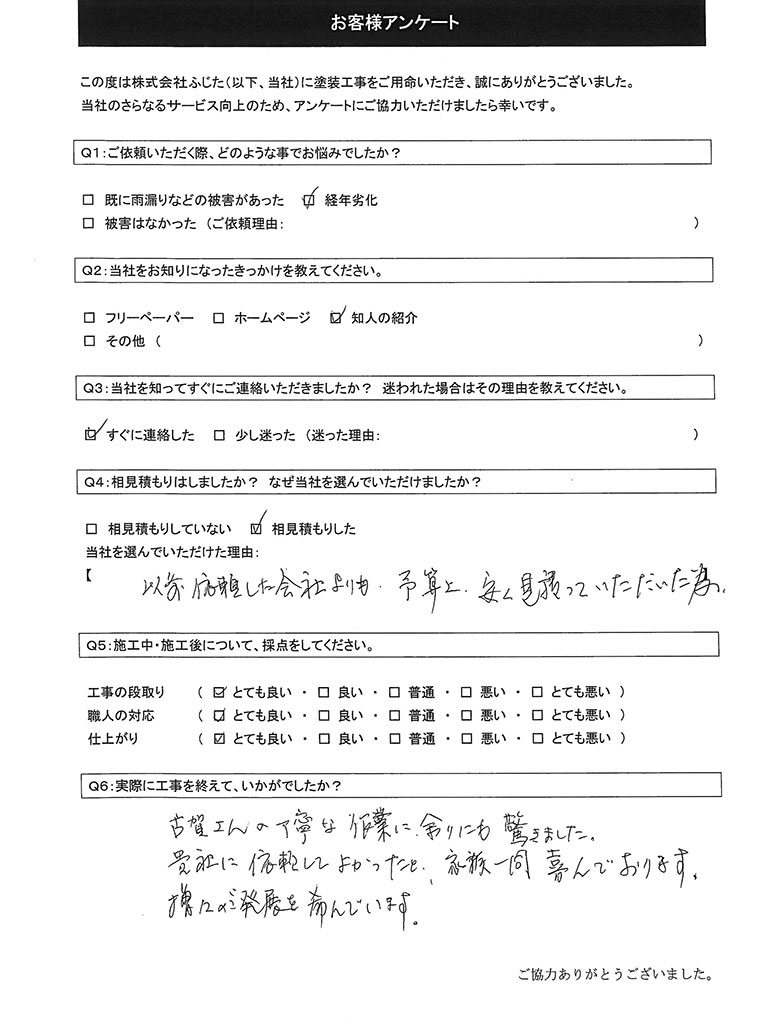 お客様アンケート
この度は株式会社ふじた(以下、当社)に塗装工事をご用命いただき、誠にありがとうございました。
当社のさらなるサービス向上のため、アンケートにご協力いただけましたら幸いです。
Q1:ご依頼いただく際、どのような事でお悩みでしたか?
□ 既に雨漏りなどの被害があった ☑ 経年劣化
□ 被害はなかった (ご依頼理由: )
Q2:当社をお知りになったきっかけを教えてください。
□ フリーペーパー □ ホームページ ☑ 知人の紹介
□ その他 ( )
Q3:当社を知ってすぐにご連絡いただきましたか? 迷われた場合はその理由を教えてください。
☑ すぐに連絡した □ 少し迷った (迷った理由: )
Q4:相見積もりはしましたか? なぜ当社を選んでいただけましたか?
□ 相見積もりしていない ☑ 相見積もりした
当社を選んでいただけた理由:
【 以前依頼した会社よりも、予算上、安く見積っていただいた為。
Q5:施工中・施工後について、採点をしてください。
工事の段取り ( ☑ とても良い ・ □ 良い ・ □ 普通 ・ □ 悪い ・ □ とても悪い )
職人の対応 ( ☑ とても良い ・ □ 良い ・ □ 普通 ・ □ 悪い ・ □ とても悪い )
仕上がり ( ☑ とても良い ・ □ 良い ・ □ 普通 ・ □ 悪い ・ □ とても悪い )
Q6:実際に工事を終えて、いかがでしたか?
古賀さんの丁寧な作業に、余りにも驚きました。
貴社に依頼してよかったと、家族一同喜んでおります。
増々のご発展を希んでいます。
ご協力ありがとうございました。